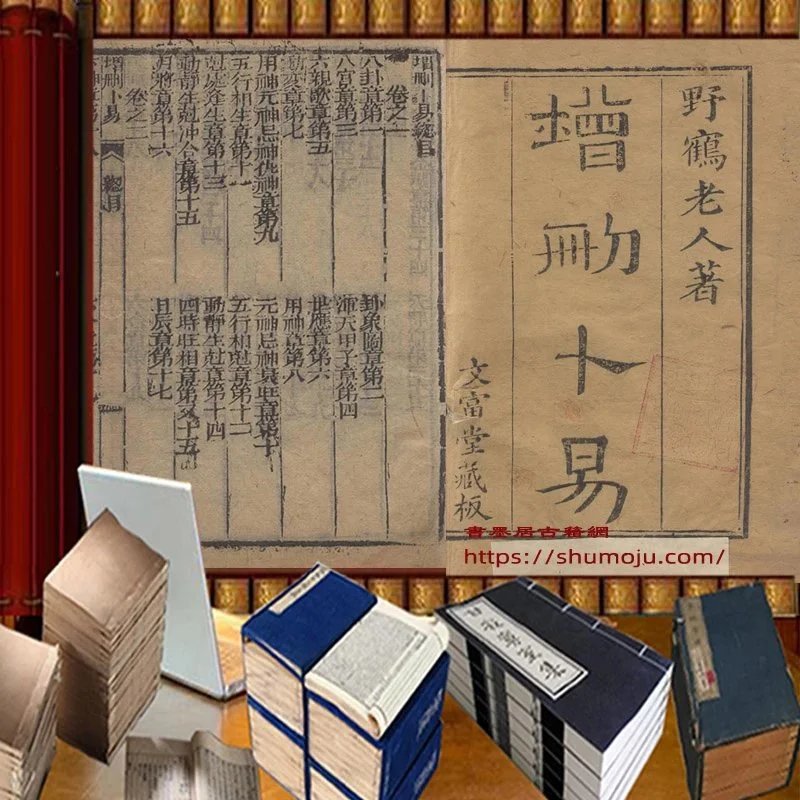 野鶴老人著
增刪卜易
文富堂藏板
增刪卜易總目
卷之一
八卦章第一　卦象圖章第二
八宮章第三　渾天甲子章第四
六親歌章第五　世應章第六
動變章第七　用神章第八
用神元神忌神仇神章第九　元神忌神衰旺章第十
五行相生章第十一　五行相尅章第十二
尅處逢生章第十三　動靜生尅章第十四
動靜生尅冲合章第十五　四時旺相章第又十五
月將章第十六　日辰章第十七
卷之二
增刪卜易　總目
書墨居古籍網
https://shumoju.com/